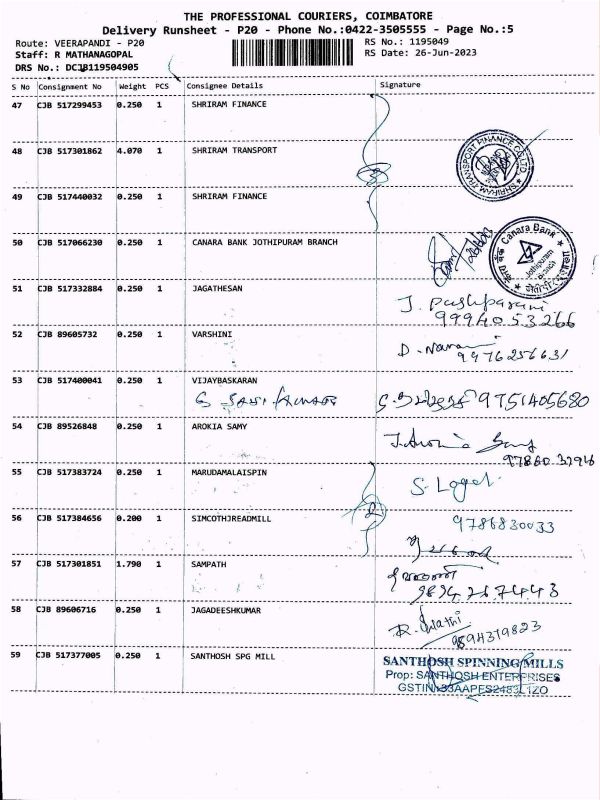 THE PROFESSIONAL COURIERS, COIMBATORE
Delivery Runsheet - P20 - Phone No.:0422-3505555 - Page No.:5
Route: VEERAPANDI - P20
RS No.: 1195049
Staff: R MATHANAGOPAL
RS Date: 26-Jun-2023
DRS No.: DCJB119504905
S No Consignment No Weight PCS Consignee Details Signature
47 CJB 517299453 0.250 1 SHRIRAM FINANCE
48 CJB 517301862 4.070 1 SHRIRAM TRANSPORT
SHRIRAM TRANSPORT FINANCE CO LTD
49 CJB 517440032 0.250 1 SHRIRAM FINANCE
50 CJB 517066230 0.250 1 CANARA BANK JOTHIPURAM BRANCH
Canara Bank
Jothipuram
Branch
51 CJB 517332884 0.250 1 JAGATHESAN
J. Pushparani
9994053266
52 CJB 89605732 0.250 1 VARSHINI
9476256631
53 CJB 517400041 0.250 1 VIJAYBASKARAN
9751405680
54 CJB 89526848 0.250 1 AROKIA SAMY
55 CJB 517383724 0.250 1 MARUDAMALAISPIN
56 CJB 517384656 0.200 1 SIMCOTHJREADMILL
9786830033
57 CJB 517301851 1.790 1 SAMPATH
9894267443
58 CJB 89606716 0.250 1 JAGADEESHKUMAR
R. Swathi
9894319823
59 CJB 517377005 0.250 1 SANTHOSH SPG MILL
SANTHOSH SPINNING MILLS
Prop: SANTHOSH ENTERPRISES